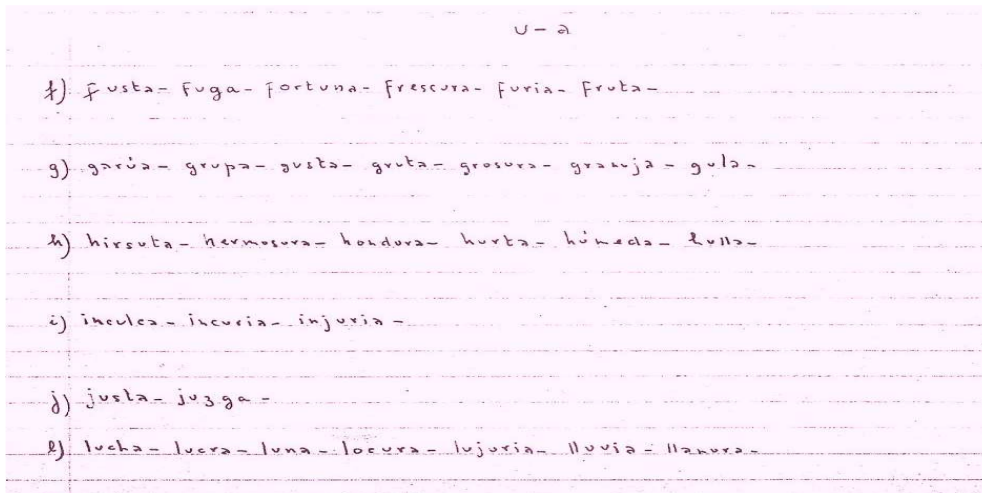 u - a
f) fusta - fuga - fortuna - frescura - furia - fruta -
g) garúa - grupa - gusta - gruta - grosura - granuja - gula -
h) hirsuta - hermosura - hondura - hurta - húmeda - hulla -
i) inculca - incuria - injuria -
j) justa - juzga -
l) lucha - lucra - luna - locura - lujuria - lluvia - llanura -